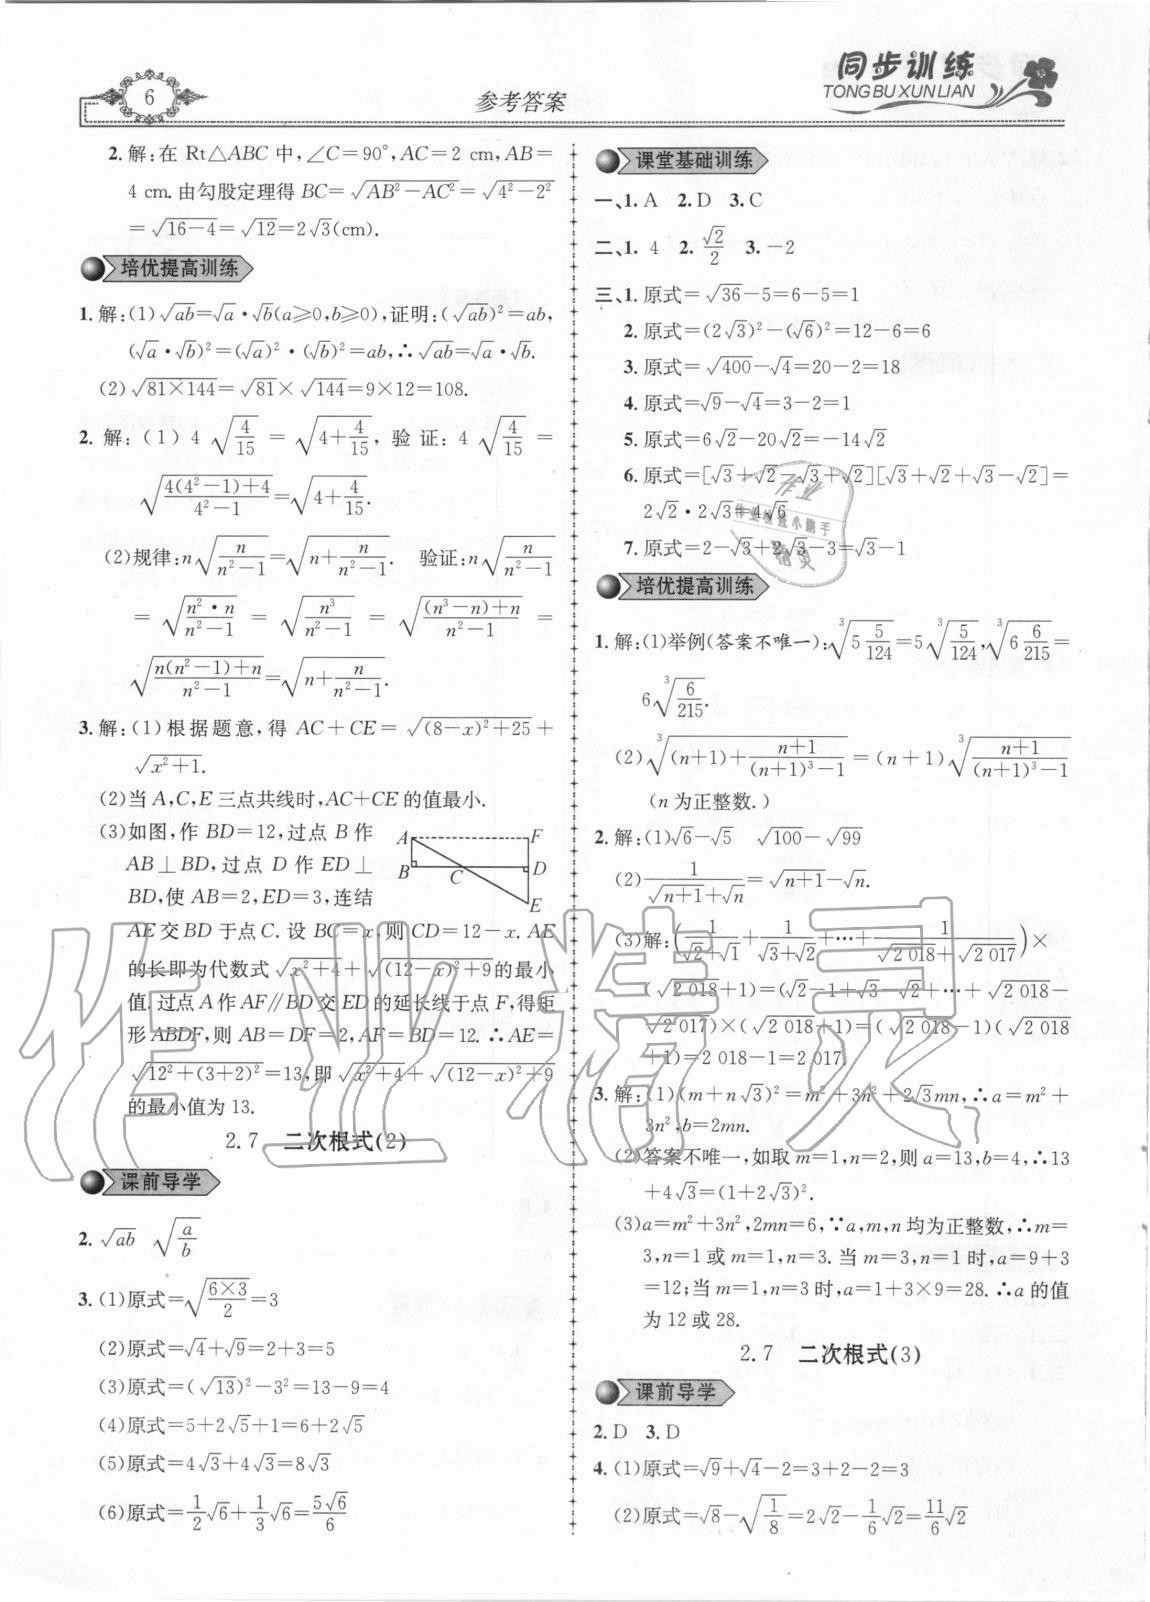 6
参考答案
同步训练
TONG BU XUN LIAN
2.解:在 Rt△ABC 中,∠C=90°,AC=2 cm,AB=
4 cm.由勾股定理得 BC=√(AB²-AC²)=√(4²-2²)
=√(16-4)=√12=2√3(cm).
培优提高训练
1.解:(1)√ab=√a·√b(a≥0,b≥0),证明:(√ab)²=ab,
(√a·√b)²=(√a)²·(√b)²=ab,∴√ab=√a·√b.
(2)√(81×144)=√81×√144=9×12=108.
2.解:(1)4√(4/15)=√(4+4/15),验证:4√(4/15)=
√((4(4²-1)+4)/(4²-1))=√(4+4/15).
(2)规律:n√(n/(n²-1))=√(n+n/(n²-1)). 验证:n√(n/(n²-1))
=√((n²·n)/(n²-1))=√(n³/(n²-1))=√(((n³-n)+n)/(n²-1))=
√((n(n²-1)+n)/(n²-1))=√(n+n/(n²-1)).
3.解:(1)根据题意,得 AC+CE=√((8-x)²+25)+
√(x²+1).
(2)当 A,C,E 三点共线时,AC+CE 的值最小.
(3)如图,作 BD=12,过点 B 作
AB⊥BD,过点 D 作 ED⊥
BD,使 AB=2,ED=3,连结
A F
B C D
E
AE 交 BD 于点 C.设 BC=x,则 CD=12-x. AE
的长即为代数式√(x²+4)+√((12-x)²+9)的最小
值.过点 A 作 AF∥BD 交 ED 的延长线于点 F,得矩
形 ABDF,则 AB=DF=2,AF=BD=12.∴AE=
√(12²+(3+2)²)=13,即√(x²+4)+√((12-x)²+9)
的最小值为 13.
2.7 二次根式(2)
课前导学
2.√ab √(a/b)
3.(1)原式=√((6×3)/2)=3
(2)原式=√4+√9=2+3=5
(3)原式=(√13)²-3²=13-9=4
(4)原式=5+2√5+1=6+2√5
(5)原式=4√3+4√3=8√3
(6)原式=1/2√6+1/3√6=5√6/6
课堂基础训练
一、1.A 2.D 3.C
二、1. 4 2. √2/2 3.-2
三、1.原式=√36-5=6-5=1
2.原式=(2√3)²-(√6)²=12-6=6
3.原式=√400-√4=20-2=18
4.原式=√9-√4=3-2=1
5.原式=6√2-20√2=-14√2
6.原式=[√3+√2-√3+√2][√3+√2+√3-√2]=
2√2·2√3=4√6
7.原式=2-√3+2√3-3=√3-1
培优提高训练
1.解:(1)举例(答案不唯一):∛(5 5/124)=5∛(5/124),∛(6 6/215)=
6∛(6/215).
(2)∛((n+1)+(n+1)/((n+1)³-1))=(n+1)∛((n+1)/((n+1)³-1))
(n 为正整数.)
2.解:(1)√6-√5 √100-√99
(2)1/(√(n+1)+√n)=√(n+1)-√n.
(3)解:(1/(√2+√1)+1/(√3+√2)+⋯+1/(√2 018+√2 017))×
(√2 018+1)=(√2-1+√3-√2+⋯+√2 018-
√2 017)×(√2 018+1)=(√2 018-1)(√2 018
+1)=2 018-1=2 017.
3.解:(1)(m+n√3)²=m²+3n²+2√3mn,∴a=m²+
3n²,b=2mn.
(2)答案不唯一,如取 m=1,n=2,则 a=13,b=4,∴13
+4√3=(1+2√3)².
(3)a=m²+3n²,2mn=6,∵a,m,n 均为正整数,∴m=
3,n=1 或 m=1,n=3. 当 m=3,n=1 时,a=9+3
=12;当 m=1,n=3 时,a=1+3×9=28.∴a 的值
为 12 或 28.
2.7 二次根式(3)
课前导学
2.D 3.D
4.(1)原式=√9+√4-2=3+2-2=3
(2)原式=√8-√(1/8)=2√2-1/6√2=11/6√2
作业精灵